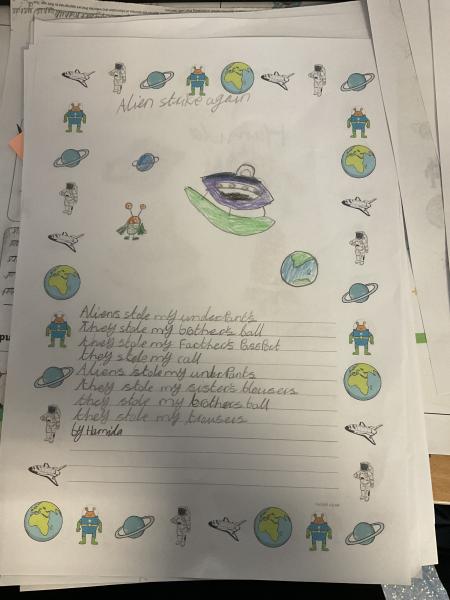 Alien strike again
Aliens stole my underpants
they stole my brothers ball
they stole my Facther's PassPort
they stole my call
Aliens stole my underpants
they stole my sister's blousers
they stole my brothers ball
they stole my trousers
by Hamida